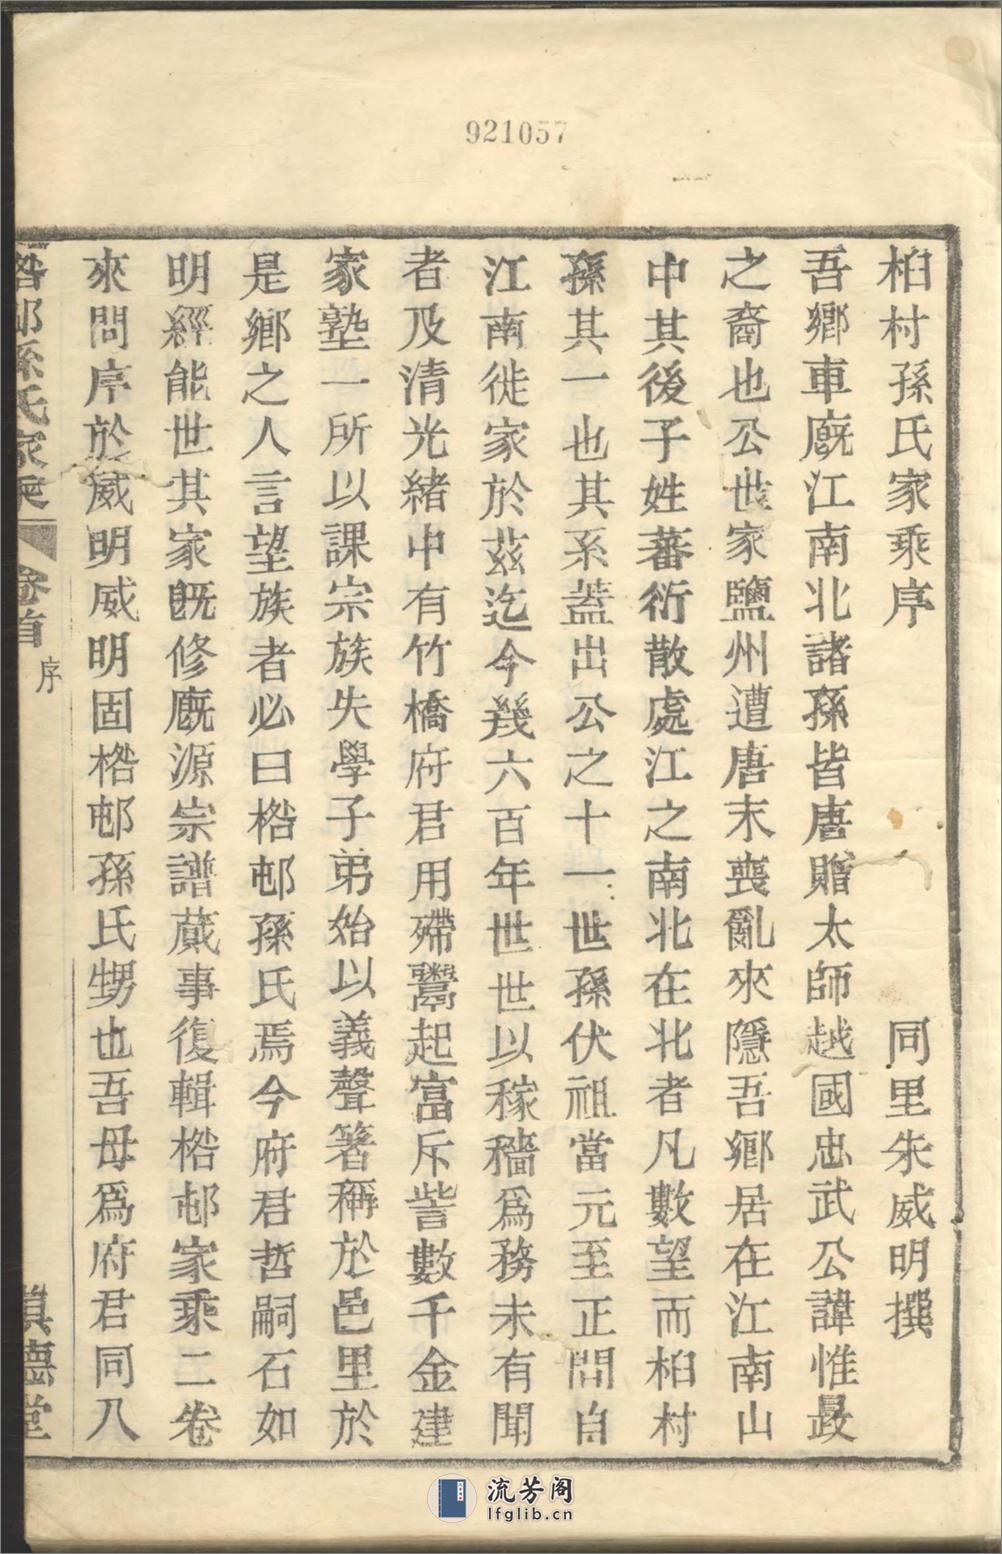 921057
桕村孫氏家乘序 同里朱威明撰
吾鄉車廐江南北諸孫皆唐贈太師越國忠武公諱惟晸
之裔也公世家鹽州遭唐末喪亂來隱吾鄉居在江南山
中其後子姓蕃衍散處江之南北在北者凡數望而桕村
孫其一也其系蓋出公之十一世孫伏祖當元至正間自
江南徙家於茲迄今幾六百年世世以稼穡爲務未有聞
者及清光緒中有竹橋府君用殢鬻起富斥訾數千金建
家塾一所以課宗族失學子弟始以義聲箸稱於邑里於
是鄉之人言望族者必曰桰邨孫氏焉今府君哲嗣石如
明經能世其家既修廐源宗譜蕆事復輯桰邨家乘二卷
來問序於威明威明固桰邨孫氏甥也吾母爲府君同八
桰邨孫氏家乘 卷首 序 眞德堂
流芳阁
lfglib.cn